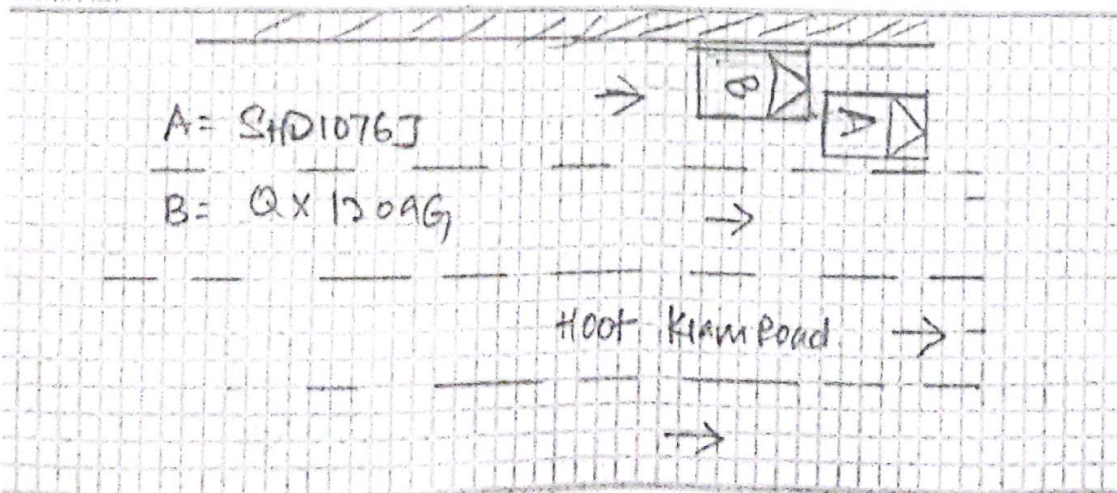 B
A
A= SHD1076J
B= QX1309G
Hoot Kiam Road